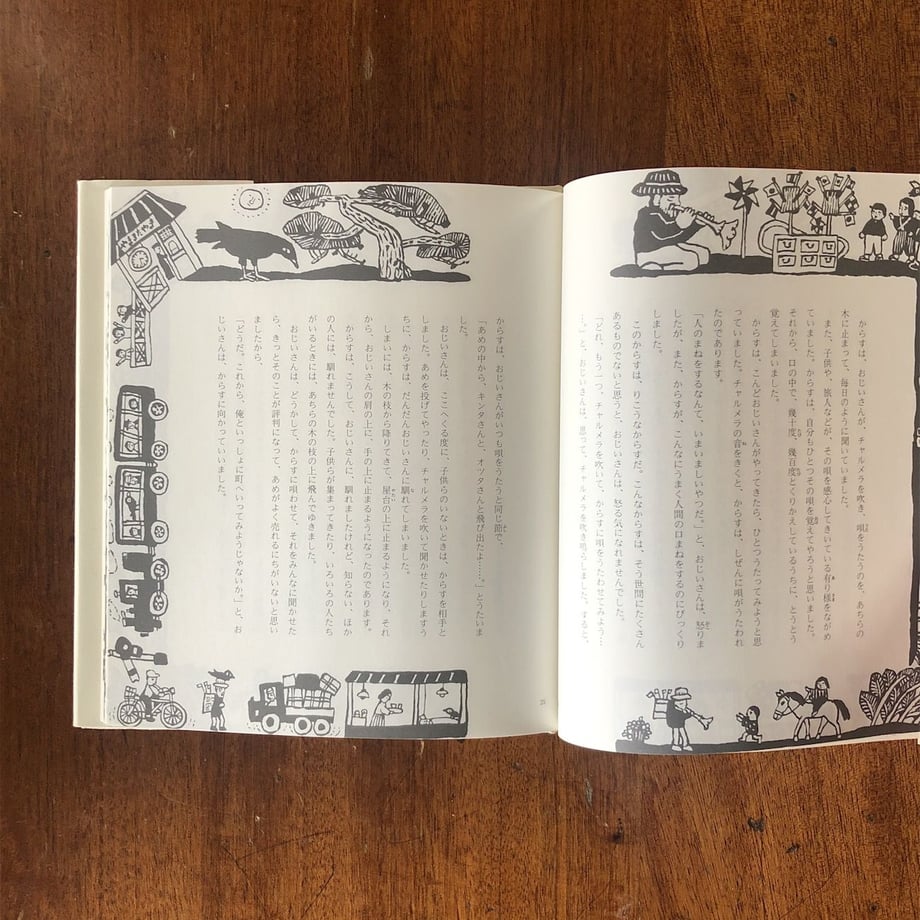 からすは、おじいさんが、チャルメラを吹き、唄をうたうのを、あちらの
木に止まって、毎日のように聞いていました。
また、子供や、旅人などが、その唄を感心してきいている有り様をながめ
ていました。からすは、自分もひとつその唄を覚えてやろうと思いました。
それから、口の中で、幾十度、幾百度とくりかえしているうちに、とうとう
覚えてしまいました。
からすは、こんどおじいさんがやってきたら、ひとつうたってみようと思
っていました。チャルメラの音をきくと、からすは、しぜんに唄がうたわれ
たのであります。
「人のまねをするなんて、いまいましいやつだ。」と、おじいさんは、怒りま
したが、また、からすが、こんなにうまく人間の口まねをするのにびっくり
しました。
このからすは、りこうなからすだ。こんなからすは、そう世間にたくさん
あるものでないと思うと、おじいさんは、怒る気になれませんでした。
「どれ、もう一つ、チャルメラを吹いて、からすに唄をうたわせてみよう…
…。」と、おじいさんは、思って、チャルメラを吹き鳴らしました。すると、
からすは、おじいさんがいつも唄をうたうと同じ節で、
「あめの中から、キンタさんと、オツタさんと飛び出たよ……。」とうたいま
した。
おじいさんは、ここへくる度に、子供らのいないときは、からすを相手と
しました。あめを投げてやったり、チャルメラを吹いて聞かせたりしますう
ちに、からすは、だんだんおじいさんに馴れてしまいました。
しまいには、木の枝から降りてきて、屋台の上に止まるようになり、それ
から、おじいさんの肩の上に、手の上に止まるようになったのであります。
からすは、こうして、おじいさんに、馴れましたけれど、知らない、ほか
の人には、馴れませんでした。子供らが集まってきたり、いろいろの人たち
がいるときには、あちらの木の枝の上に飛んでゆきました。
おじいさんは、どうかして、からすに唄わせて、それをみんなに聞かせた
ら、きっとそのことが評判になって、あめがよく売れるにちがいないと思い
ましたから、
「どうだ。これから、俺といっしょに町へいってみようじゃないか。」と、お
じいさんは、からすに向かっていいました。